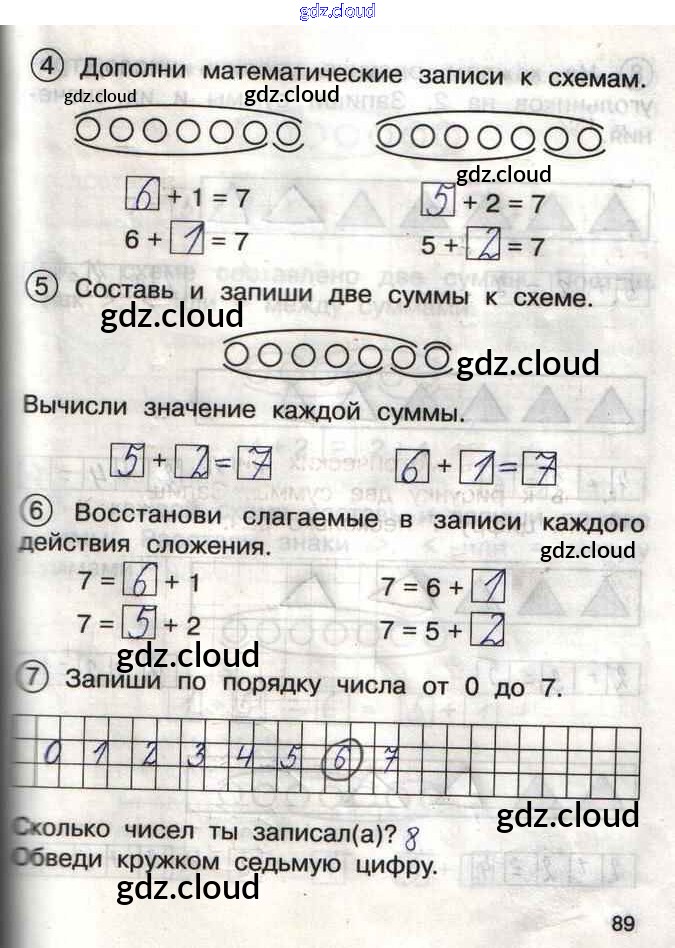 gdz.cloud
4 Дополни математические записи к схемам.
gdz.cloud gdz.cloud
gdz.cloud
6 + 1 = 7 5 + 2 = 7
6 + 1 = 7 5 + 2 = 7
5 Составь и запиши две суммы к схеме.
gdz.cloud
gdz.cloud
Вычисли значение каждой суммы.
5 + 2 = 7 6 + 1 = 7
6 Восстанови слагаемые в записи каждого
действия сложения.
gdz.cloud
7 = 6 + 1 7 = 6 + 1
7 = 5 + 2 7 = 5 + 2
gdz.cloud
7 Запиши по порядку числа от 0 до 7.
0 1 2 3 4 5 6 7
gdz.cloud
Сколько чисел ты записал(а)? 8
Обведи кружком седьмую цифру.
gdz.cloud
89